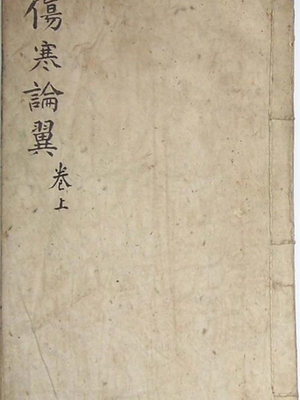 傷寒論翼
卷上